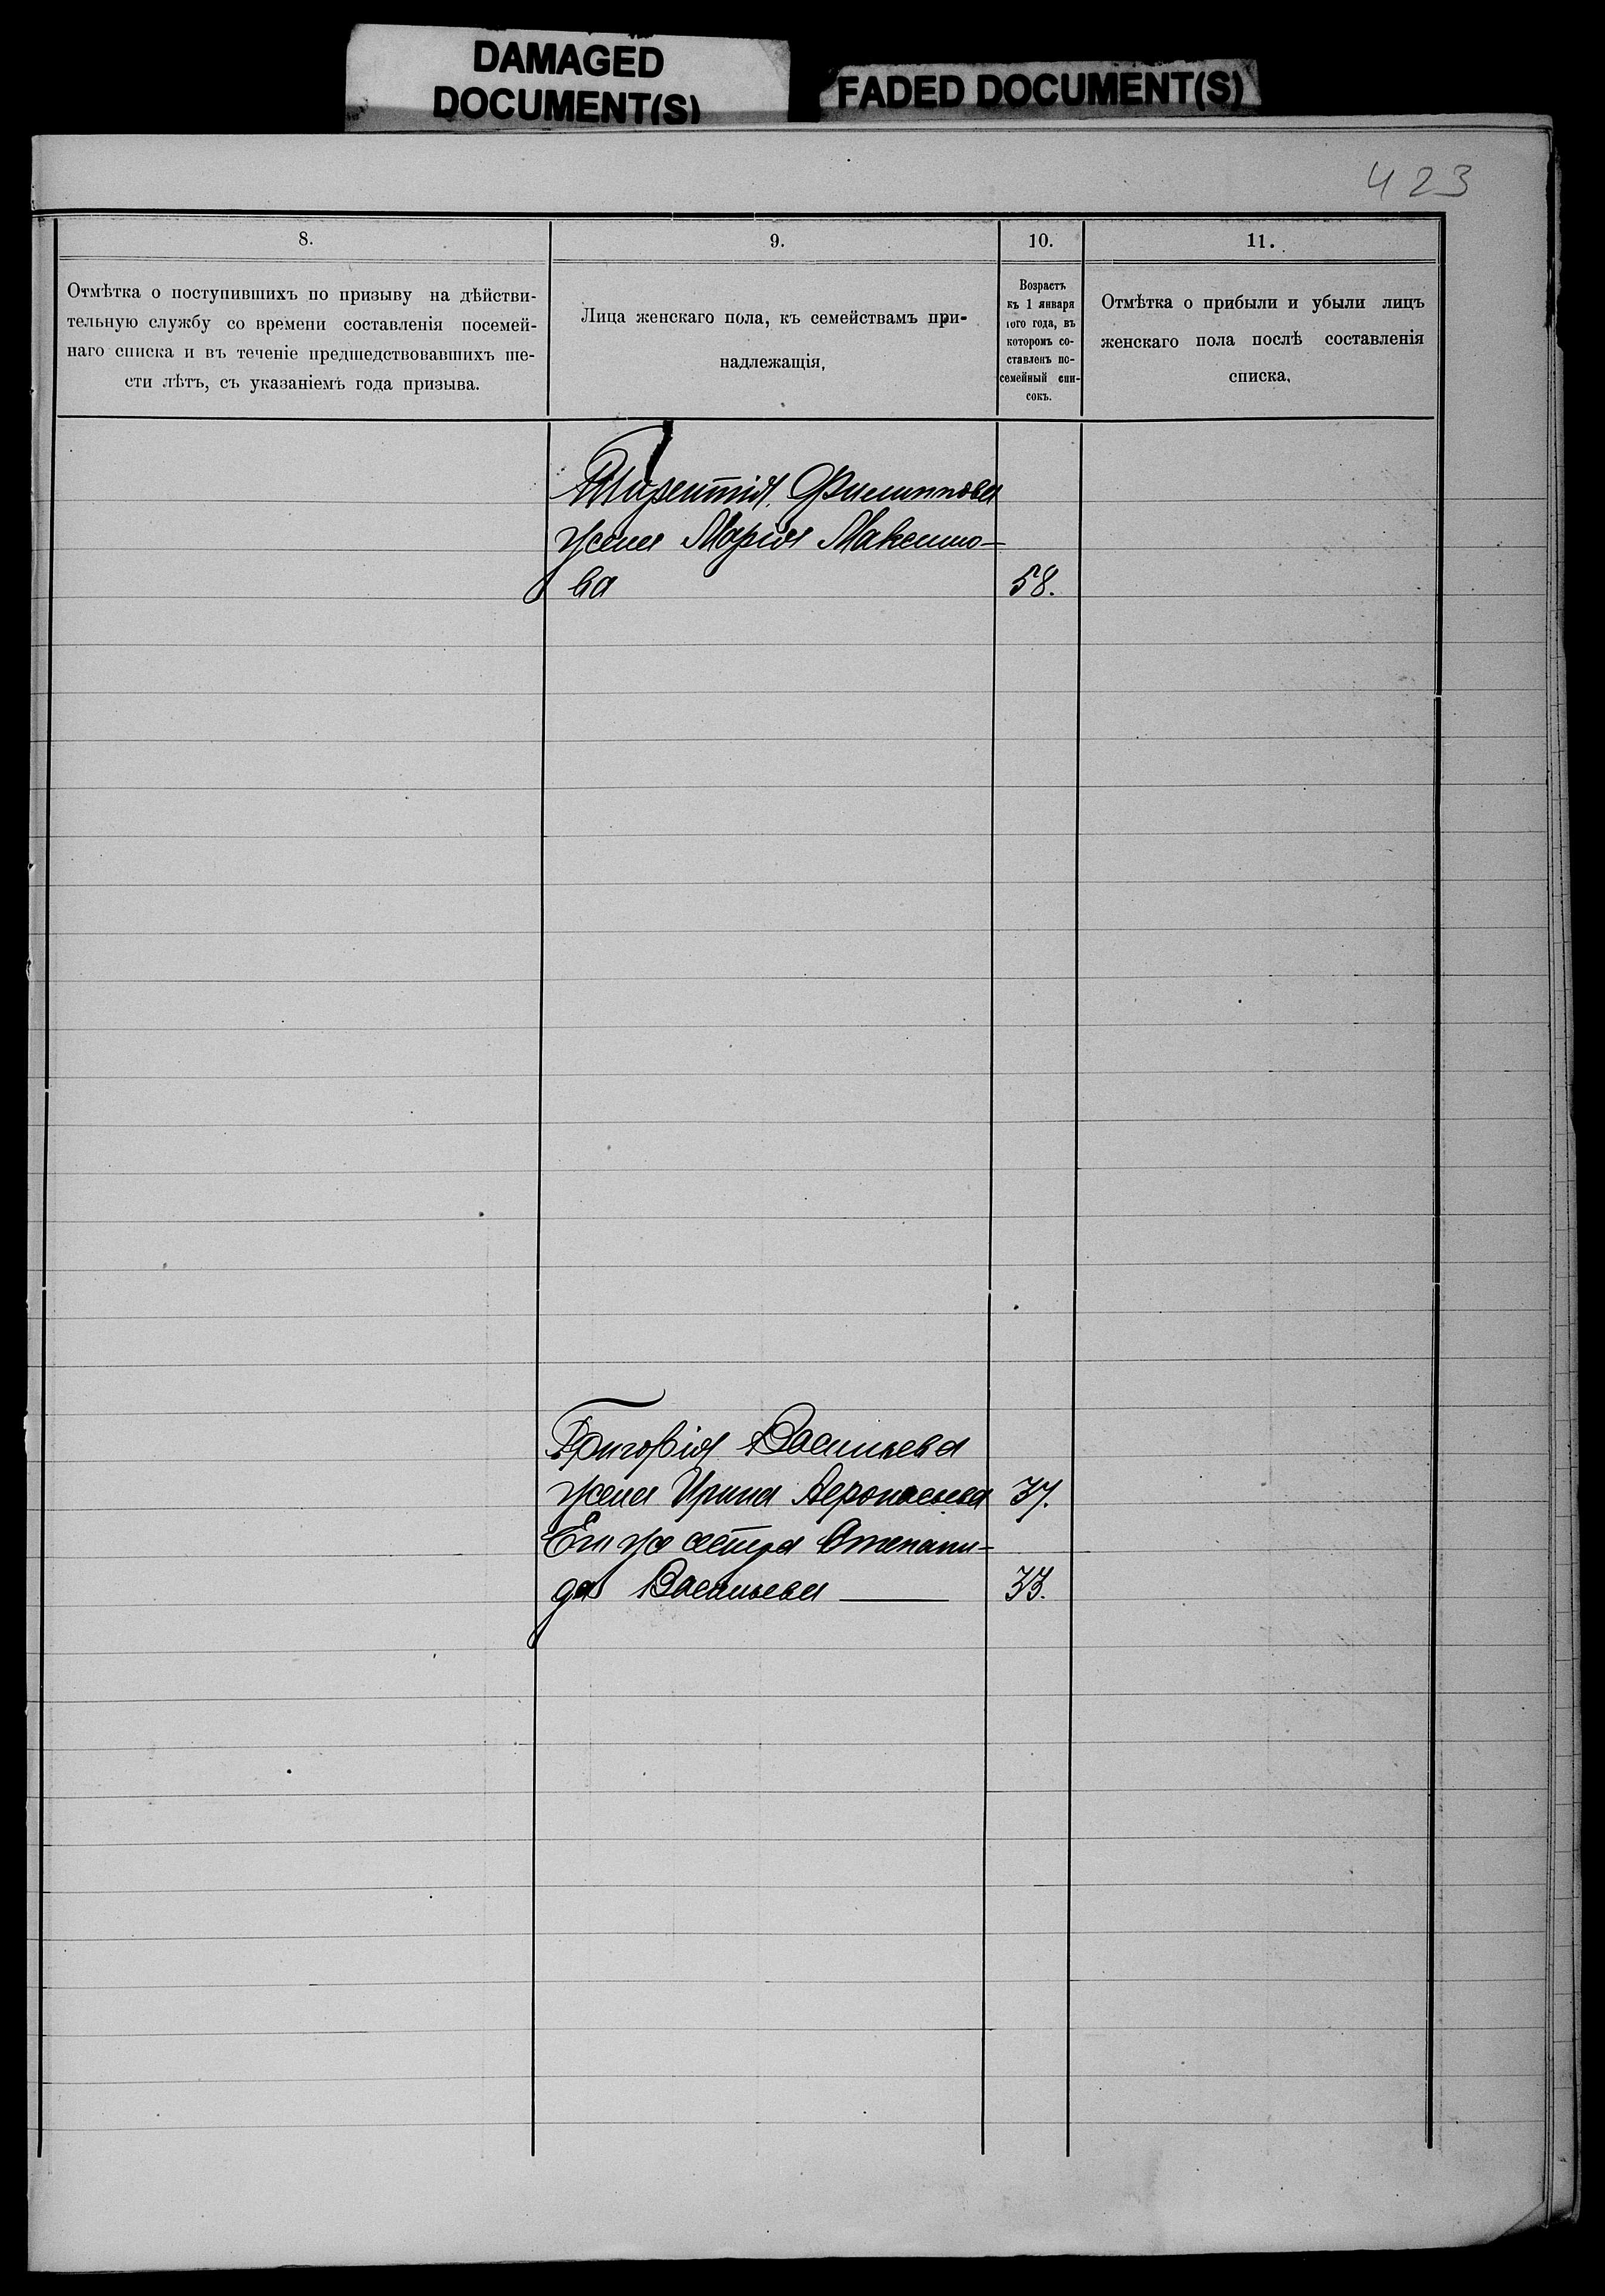 DAMAGED
DOCUMENT(S)
FADED DOCUMENT(S)
423
8.
9.
10.
11.
Отмѣтка о поступившихъ по призыву на дѣйстви-
тельную службу со времени составленія посемей-
наго списка и въ теченіе предшедствовавшихъ ше-
сти лѣтъ, съ указаніемъ года призыва.
Лица женскаго пола, къ семействамъ при-
надлежащія,
Возрастъ
къ 1 января
того года, въ
которомъ со-
ставленъ по-
семейный спи-
сокъ.
Отмѣтка о прибыли и убыли лицъ
женскаго пола послѣ составленія
списка,
Филиппова
жена Марія Максимо-
ва 58.
Григорія Васильева
жена Ирина 37.
Его же сестра Степани-
да Васильева 33.